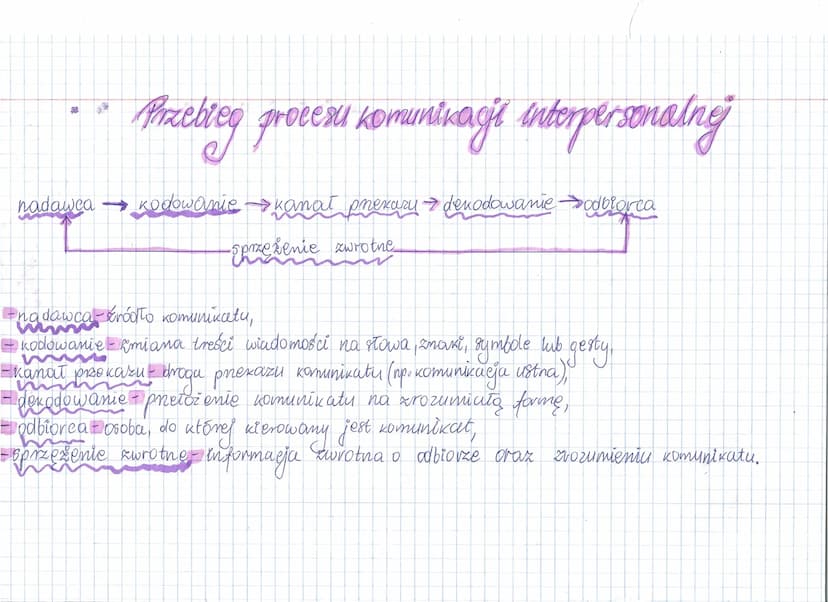 Przebieg procesu komunikacji interpersonalnej
nadawca → kodowanie → kanał przekazu → dekodowanie → odbiorca
sprzężenie zwrotne
- nadawca - źródło komunikatu,
- kodowanie - zmiana treści wiadomości na słowa, znaki, symbole lub gesty,
- kanał przekazu - droga przekazu komunikatu (np. komunikacja ustna),
- dekodowanie - przełożenie komunikatu na zrozumiałą formę,
- odbiorca - osoba, do której kierowany jest komunikat,
- sprzężenie zwrotne - informacja zwrotna o odbiorze oraz zrozumieniu komunikatu.